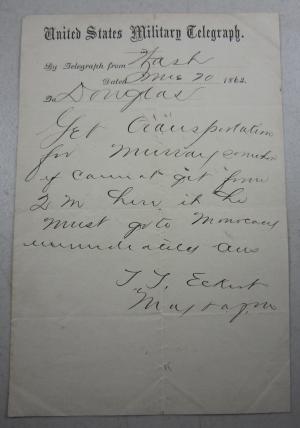 United States Military Telegraph.
By Telegraph from Wash
Dated 20 1862.
To Douglas
Get transportation
for Murray
if cannot get from
2 M here it he
must go to Monocacy
immediately ans
T. T. Eckert
Maj